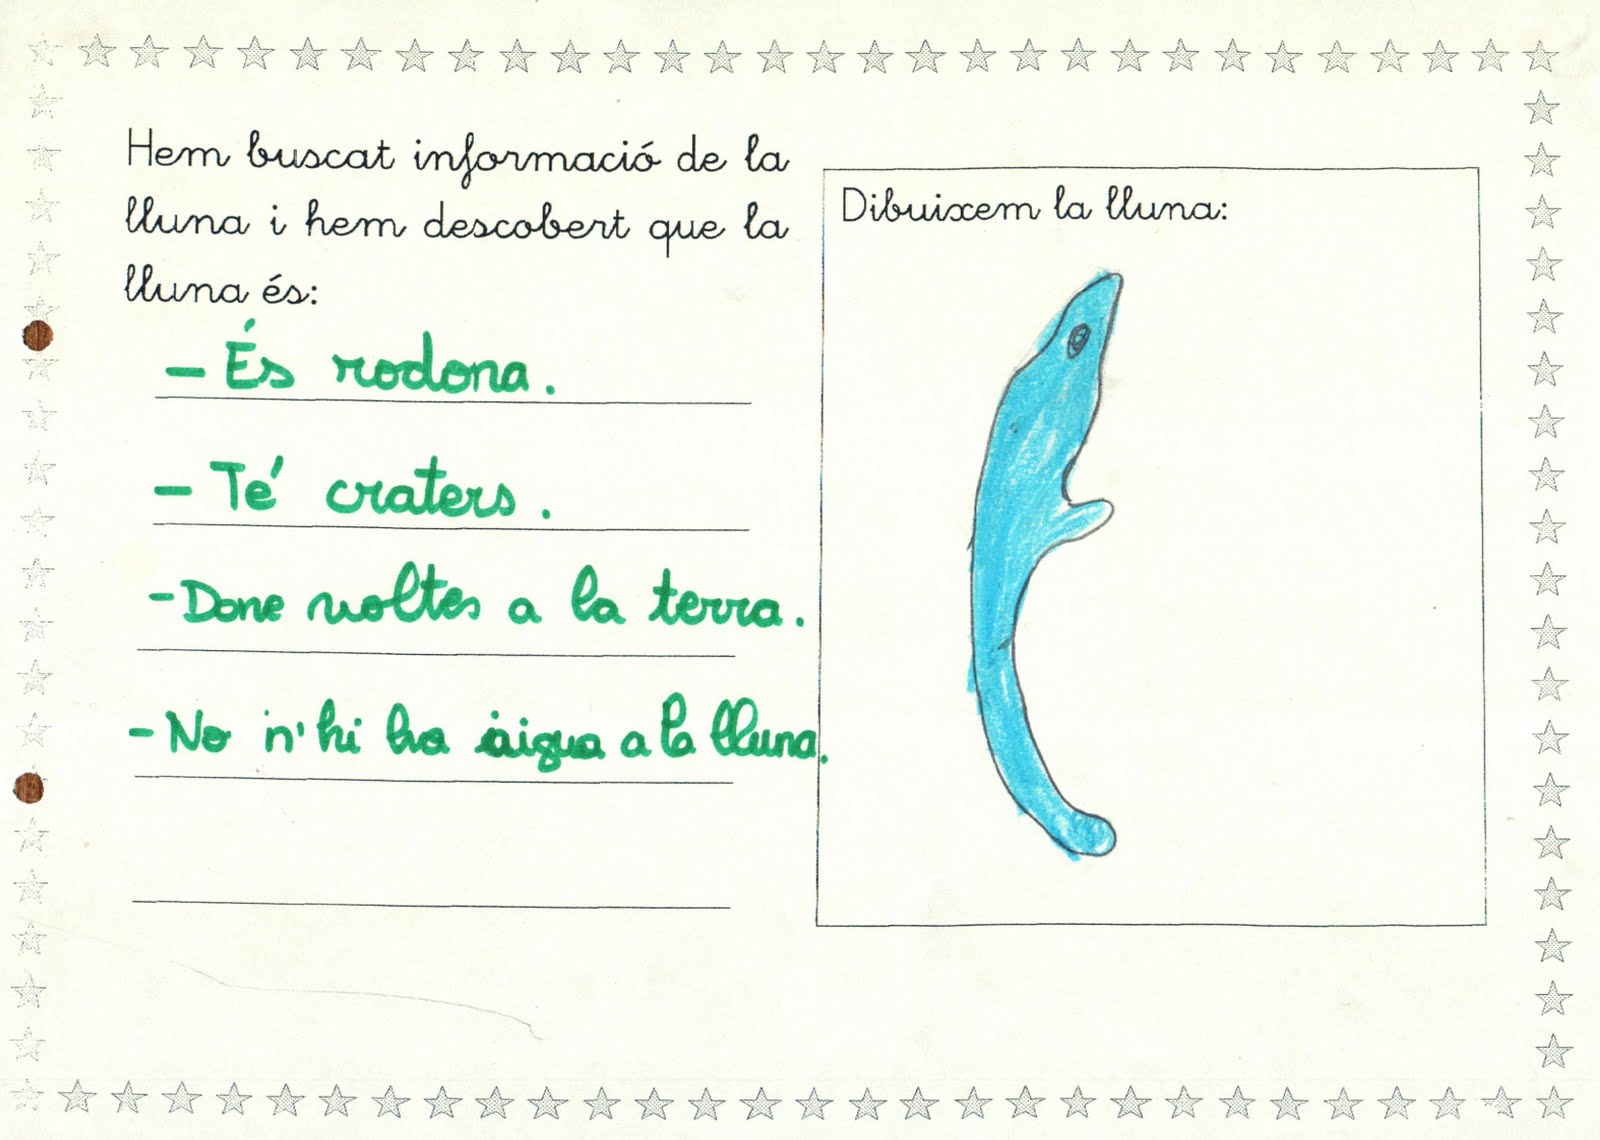 Hem buscat informació de la
lluna i hem descobert que la
lluna és:
- És rodona.
- Té craters.
- Done voltes a la terra.
- No n'hi ha aigua a la lluna.
Dibuixem la lluna: